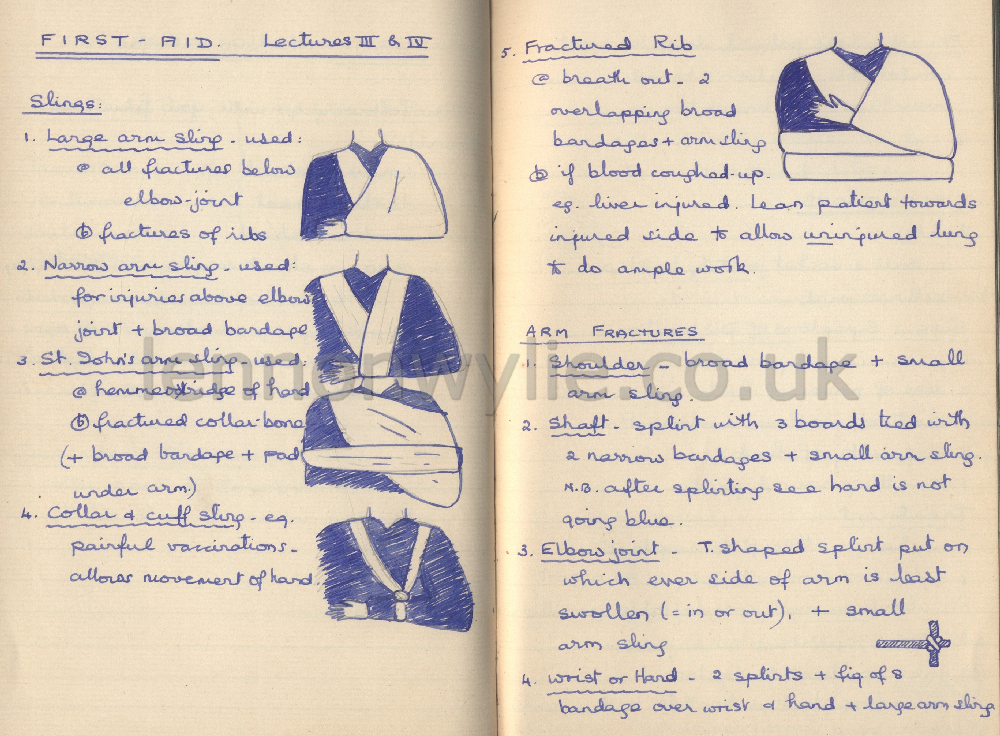 FIRST-AID. Lectures III & IV
Slings:
1. Large arm sling - used:
@ all fractures below
elbow-joint
ⓑ fractures of ribs
2. Narrow arm sling - used:
for injuries above elbow
joint + broad bandage
3. St. John's arm sling used:
@ hemmorridge of hand
ⓑ fractured collar-bone
(+ broad bandage + pad
under arm.)
4. Collar & cuff sling - eg.
painful vaccinations -
allows movement of hand.
5. Fractured Rib
@ breath out - 2
overlapping broad
bandages + arm sling
ⓑ if blood coughed-up.
eg. liver injured. Lean patient towards
injured side to allow uninjured lung
to do ample work.
ARM FRACTURES
1. Shoulder - broad bandage + small
arm sling.
2. Shaft - splint with 3 boards tied with
2 narrow bandages + small arm sling.
N.B. after splinting see hand is not
going blue.
3. Elbow joint - T. shaped splint put on
which ever side of arm is least
swollen (= in or out), + small
arm sling
4. Wrist or Hand - 2 splints + fig of 8
bandage over wrist & hand + large arm sling
lennonwylie.co.uk